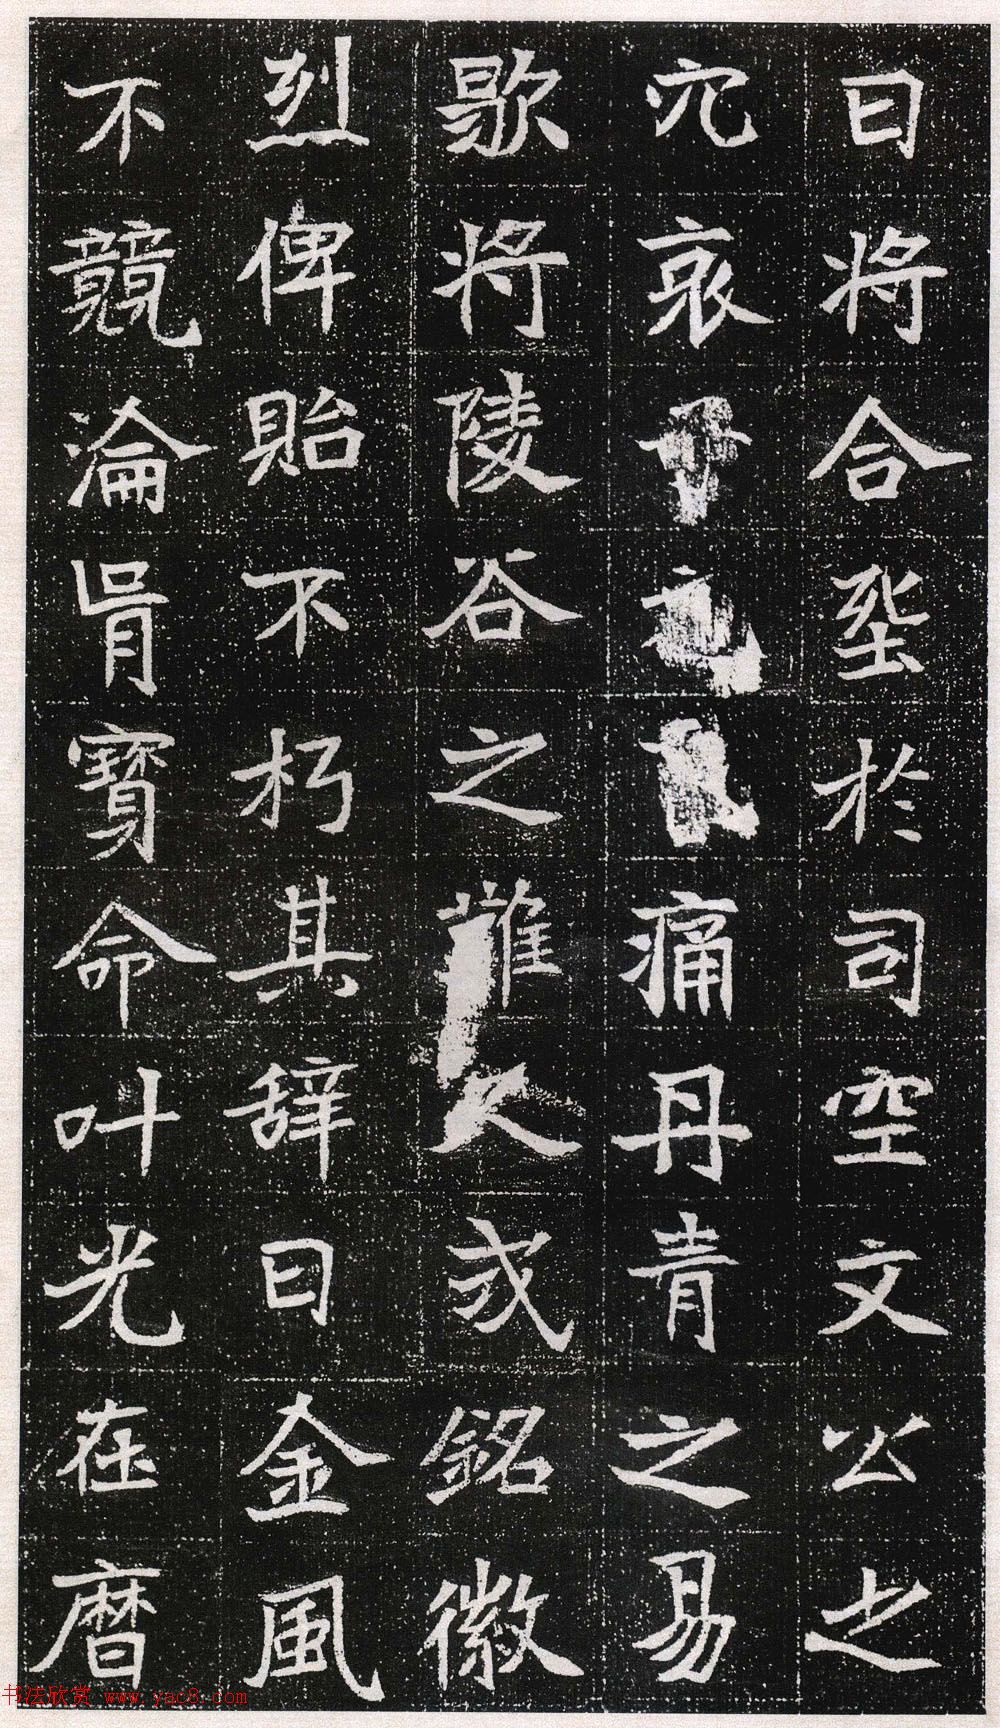 日将合塟於司空文公之
穴哀痛丹青之易
歇将陵谷之難久式銘徽
烈俾貽不朽其辞曰金風
不競淪胥寶命叶光在曆
书法欣赏 www.yac8.com